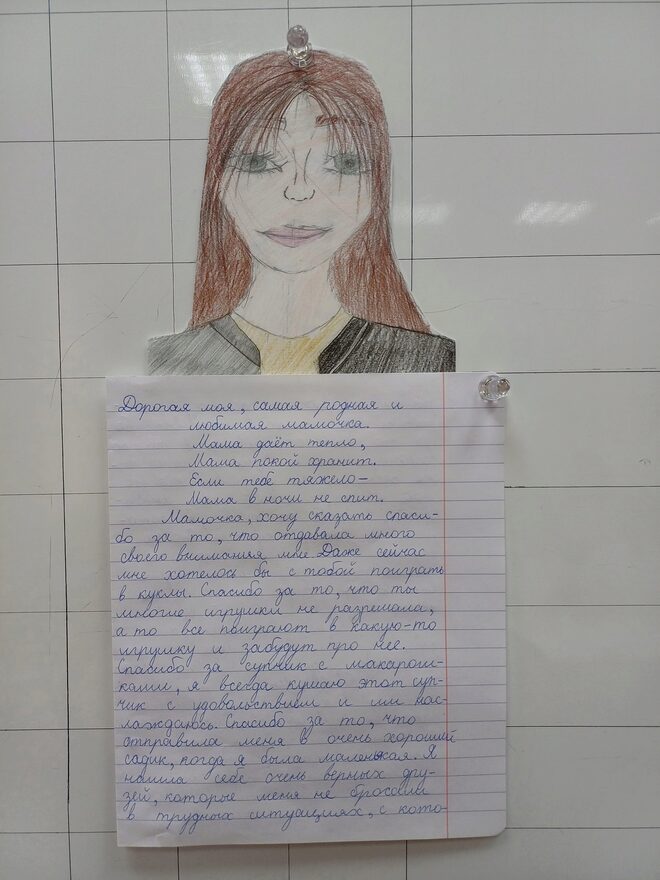 Дорогая моя, самая родная и
любимая мамочка.
Мама даёт тепло,
Мама покой хранит.
Если тебе тяжело–
Мама в ночи не спит.
Мамочка, хочу сказать спаси-
бо за то, что отдавала много
своего внимания мне Даже сейчас
мне хотелось бы с тобой поиграть
в куклы. Спасибо за то, что ты
многие игрушки не разрешала,
а то все поиграют в какую-то
игрушку и забудут про нее.
Спасибо за супчик с макарош-
ками, я всегда кушаю этот суп-
чик с удовольствием и им нас-
лаждаюсь. Спасибо за то, что
отправила меня в очень хороший
садик, когда я была маленькая. Я
нашла себе очень верных дру-
зей, которые меня не бросали
в трудных ситуациях, с кото-